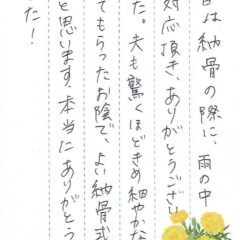 日は納骨の際に、雨の中
対応頂き、ありがとうござい
た。夫も驚くほどきめ細やかな
てもらったお陰で、よい納骨式
と思います。本当にありがとう
た！